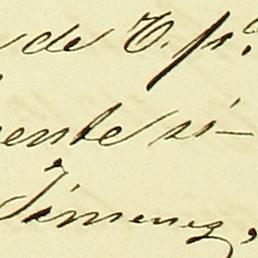 de T. pr.
ente si-
Jimenez,